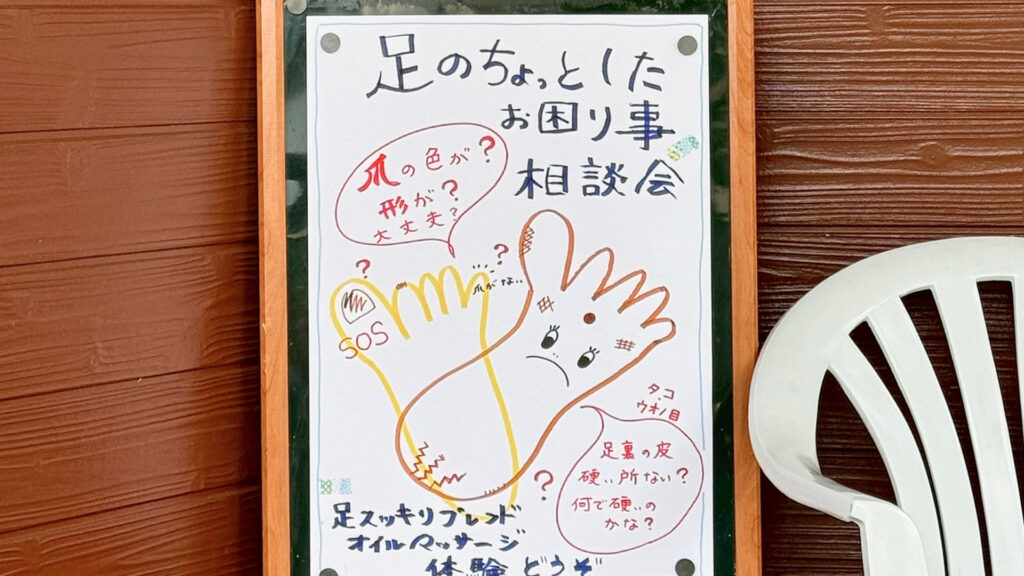 足のちょっとした
お困り事
相談会
爪の色が?
形が?
大丈夫?
?
?
爪がない
SOS
タコ
ウオノ目
足裏の皮
硬い所ない?
何で硬いの
かな?
?
足スッキリブレンド
オイルマッサージ
体験どうぞ